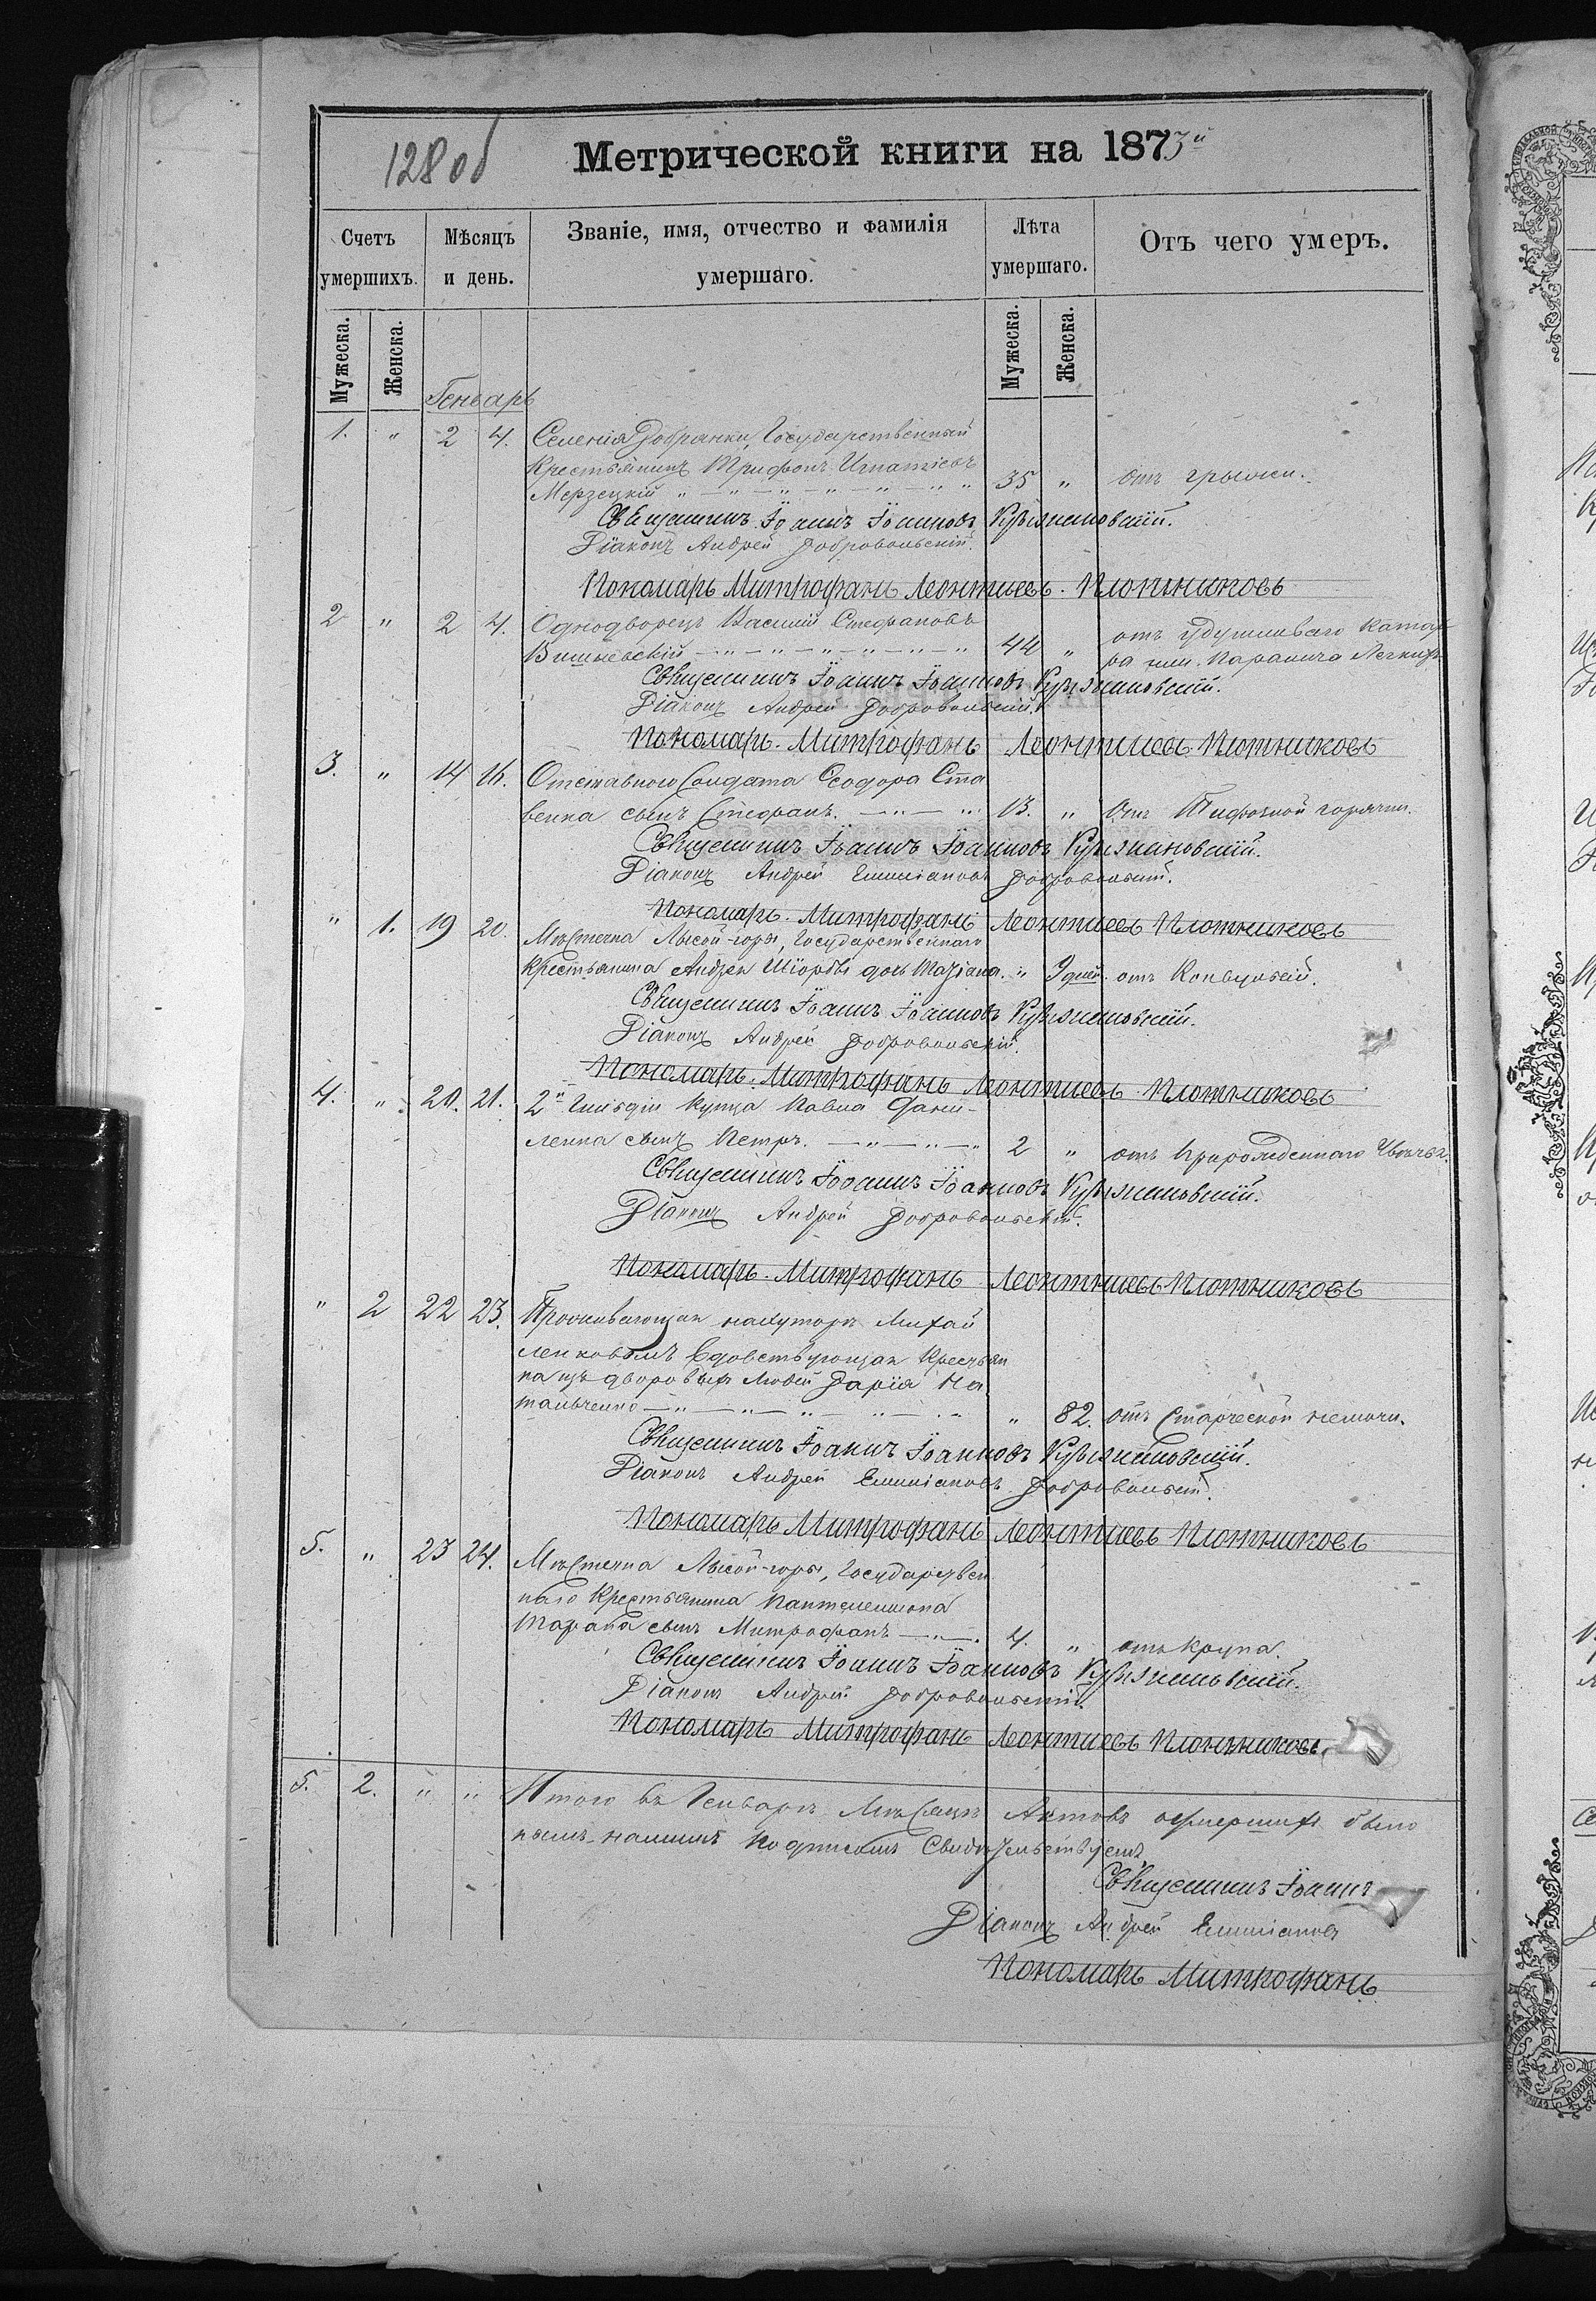 128 об
Метрической книги на 1873й
Счетъ умершихъ.
Мѣсяцъ и день.
Званіе, имя, отчество и фамилія умершаго.
Лѣта умершаго.
Отъ чего умеръ.
Мужеска.
Женска.
Мужеска.
Женска.
Генварь
1. " 2 4. Селенія Добрянки, Государственный
Крестьянинъ Трифонъ Игнатіевъ
Мерзецкій 35 " отъ грыжи.
Священникъ Іоаннъ Іоанновъ
Діаконъ Андрей Добровольскій.
Пономарь Митрофанъ Леонтиевъ Плотниковъ
2 " 2 4. Однодворецъ Василій Стефановъ
Вишневскій 44 " отъ удушливаго катар
ра или Паралича Легкихъ
Священникъ Іоаннъ Іоанновъ
Діаконъ Андрей Добровольскій.
Пономарь. Митрофанъ Леонтиевъ Плотниковъ
3. " 14 16. Отставного Солдата Ѳеодора Ста
венка сынъ Стефанъ. 13. " Отъ Тифозной горячки.
Священникъ Іоаннъ Іоанновъ
Діаконъ Андрей Емиліановъ Добровольскій.
Пономарь. Митрофанъ Леонтиевъ Плотниковъ
" 1. 19 20. Мѣстечка Лысой-горы, Государственнаго
Крестьянина Андрея дочь Татіана. " 9 дней. отъ Конвульсій.
Священникъ Іоаннъ Іоанновъ
Діаконъ Андрей Добровольскій.
Пономарь. Митрофанъ Леонтиевъ Плотниковъ
4. " 20. 21. 2й Гильдіи Купца Павла Дани-
ленка сынъ Петръ. 2 " отъ Прирожденнаго
Священникъ Іоаннъ Іоанновъ
Діаконъ Андрей Добровольскій.
Пономарь. Митрофанъ Леонтиевъ Плотниковъ
" 2 22 23. Проживающая на хуторѣ Михай
ленковомъ Вдовствующая Крестьян
ка изъ дворовыхъ людей Дарія На
тальченко " 82. отъ Старческой немочи.
Священникъ Іоаннъ Іоанновъ
Діаконъ Андрей Емиліановъ Добровольскій.
Пономарь Митрофанъ Леонтиевъ Плотниковъ
5. " 23 24. Мѣстечка Лысой-горы, Государствен
наго Крестьянина Пантелеимона
Тарана сынъ Митрофанъ 4. " отъ Крупа.
Священникъ Іоаннъ Іоанновъ
Діаконъ Андрей Добровольскій.
Пономарь Митрофанъ Леонтиевъ Плотниковъ
5. 2. " " Итого въ Генварѣ Мѣсяцѣ Актовъ о умершихъ было
нашимъ подписомъ Свидѣтельствуемъ
Священникъ Іоаннъ
Діаконъ Андрей Емиліановъ
Пономарь Митрофанъ